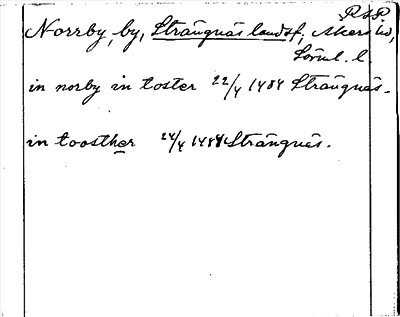 RSP
Norrby, by, Strängnäs landsf, Åkers hd,
Sörml. l.
in norby in toster 22/4 1484 Strängnäs.
in toosther 24/4 1484 Strängnäs.